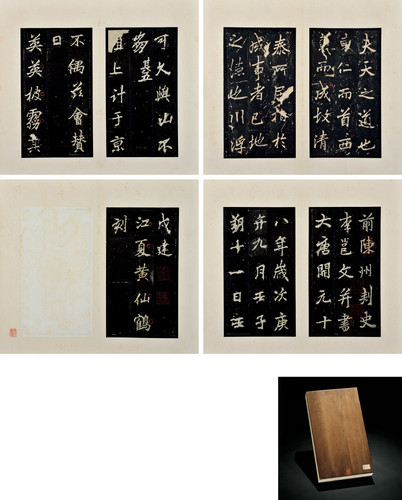 夫天之道也
東仁而首西
義而成故清
泰所居指於
成事者已地
之德也川浮
可久與山不
且上計于京
不偶茲會賛
曰
英英披霧
前陳州刾史
李邕文并書
大唐開元十
八年歲次庚
午九月壬子
朔十一日壬
戌建
江夏黃仙鶴
刻